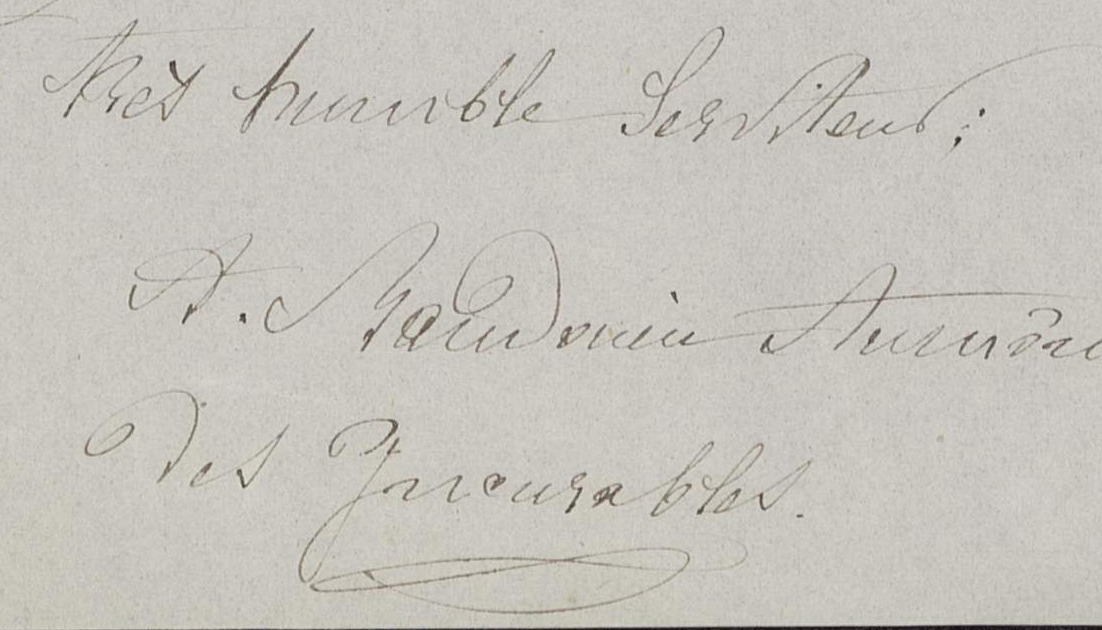 très humble Serviteur;
A. Baudouin Aumôn
des Incurables.